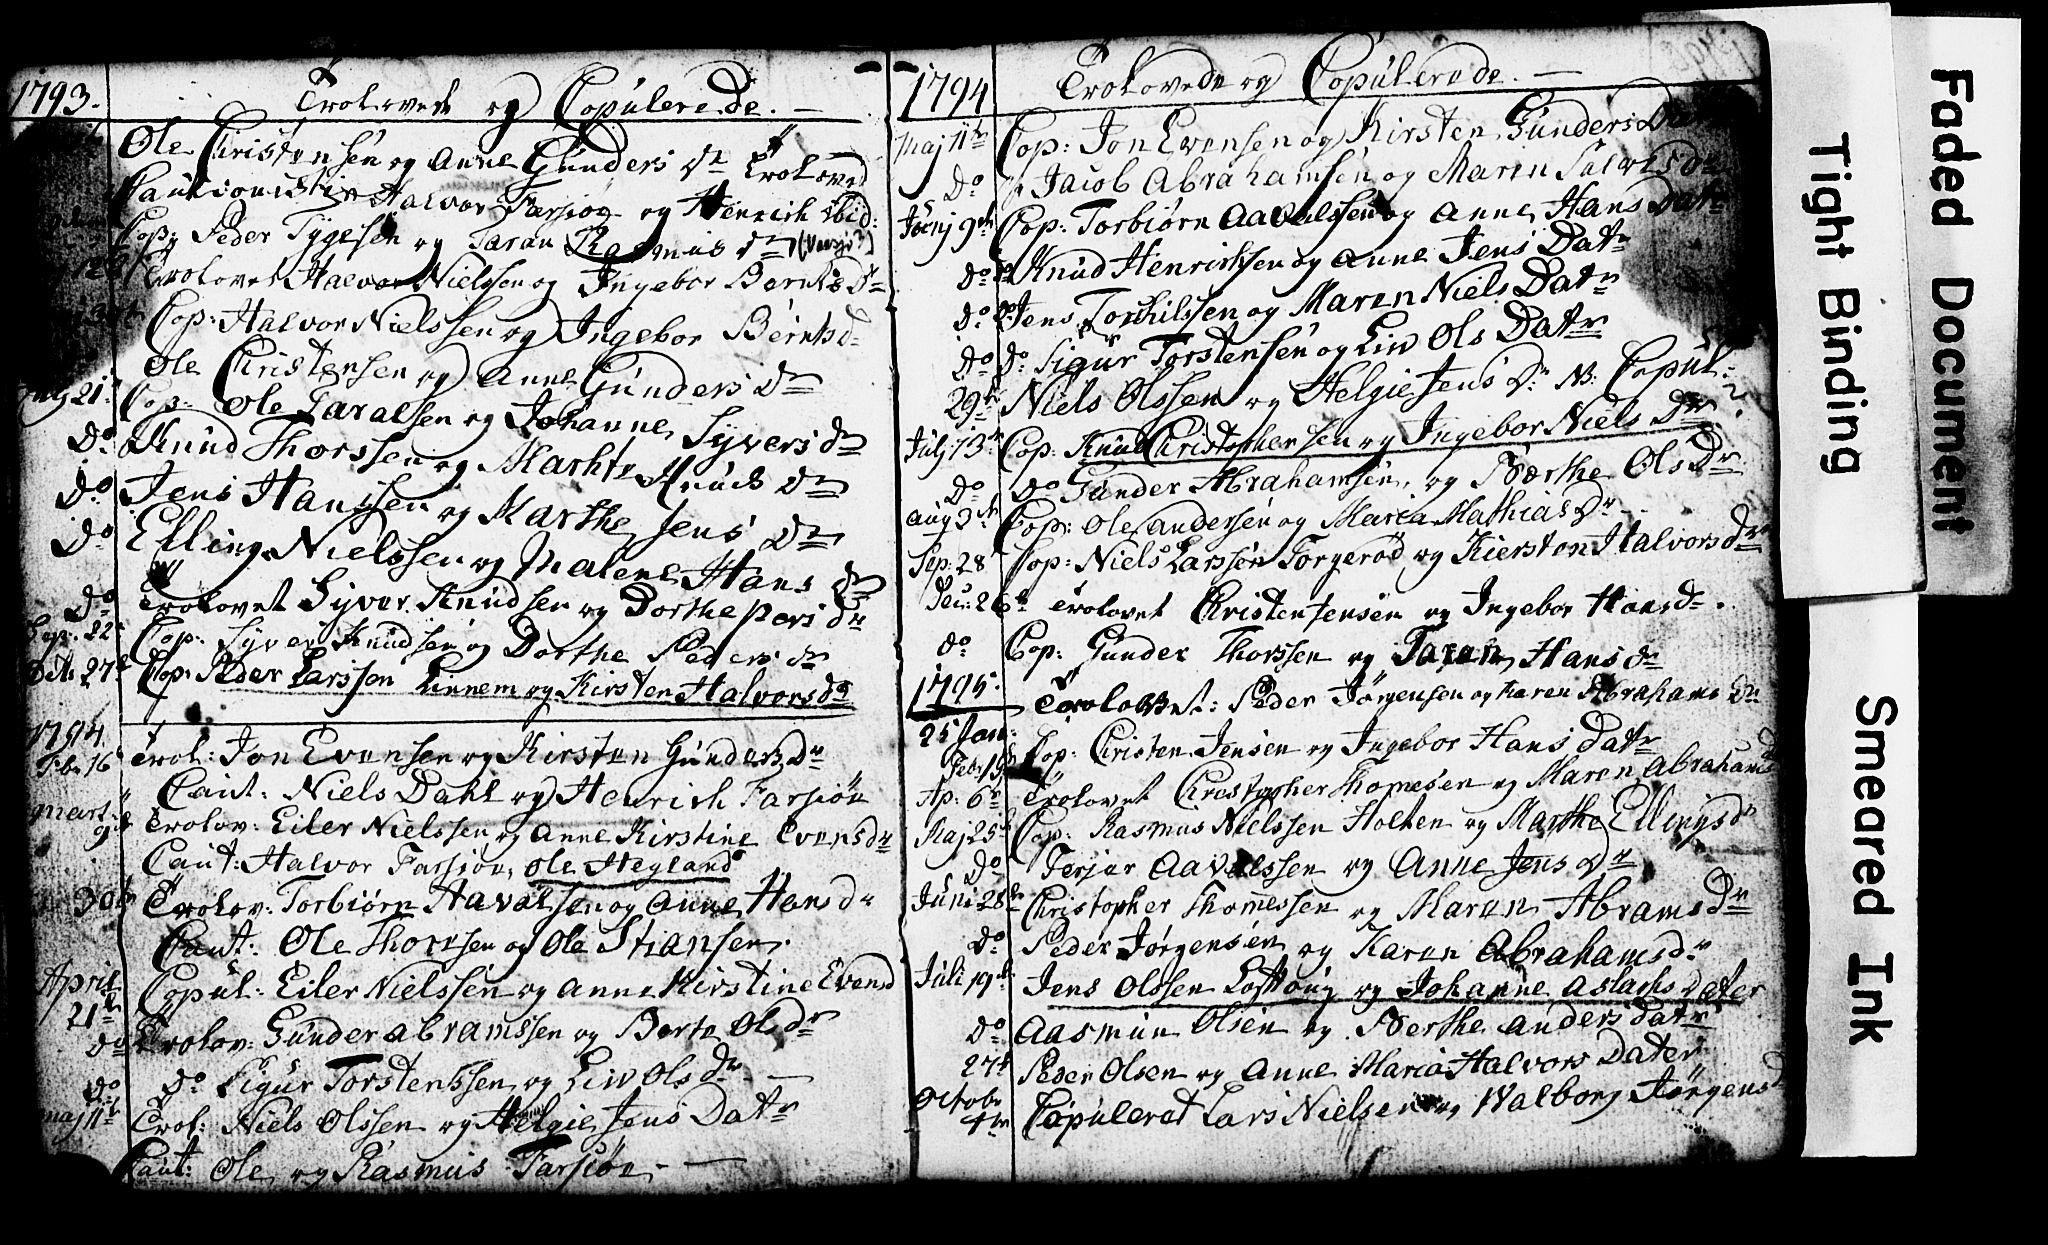 1793. Trolovede og Copulerede.
Ole Christensen og Anne Gunders Dr Trolovet
Cautionister Halvor Farsiøe og Henrich ibid:
Cop: Peder Tygesen og Taran Rasmus Dr
Trolovet Halvor Nielssen og Ingebor Bernts Dr
Cop: Halvor Nielssen og Ingebor Bernts d
Ole Christensen og Anne Gunders Dr
21 Cop: Ole Taralsen og Johanne Syvers dr
Do Knud Thorssen og Marhte Knuds Dr
Do Jens Hanssen og Marthe Jens Dr
Do Elling Nielssen og Malene Hans Dr
Do Trolovet Syver Knudsen og Dorthe Pers dr
Sep. 22 Cop: Syver Knudsen og Dorthe Peders dr
27 Cop: Peder Larssen Linnem og Kirsten Halvorsdr
1794.
Feb. 16 Trol: Jon Evensen og Kirsten Gunders Dr
Caut: Niels Dahl og Henrich Farsiøe
Mart: 9 Trolov: Eiler Nielssen og Anne Kirstine Evensdr
Caut: Halvor Farsiøe, Ole Hegland
30 Trolov: Torbiørn Aavalsen og Anne Hans d
Caut: Ole Thorssen og Ole Stiansen.
April 21 Copul: Eiler Nielssen og Anne Kirstine Evensd
do Trolov: Gunder Abramssen og Berte Olsdr
do Do Sigur Torstenssen og Liv Ols Dr
Maj 11 Trol: Niels Olssen og Helgie Jens Datr
Caut: Ole og Rasmus Farsiøe
1794 Trolovede og Copulerede.
Maj 11 Cop: Jon Evensen og Kirsten Gunders
Do Jacob Abrahamsen og Maren Salvesdr
Junj 9 Cop: Torbiørn Aavalssen og Anne Hans Datr
Do Do Knud Henrichsen og Anne Jens Datr
Do Do Jens Torkilssen og Maren Niels Datr
Do Do Sigur Torstensen og Liv Ols Datr
29 Niels Olssen og Helgie Jens Dr NB: Copul: ?
Julj 13 Cop: Knud Christophersen og Ingebor Niels Dr
Do Do Gunder Abrahamsen og Berthe Ols Dr
Aug 3 Cop: Ole Andersen og Maria Mathias Dr
Sep: 28 Cop: Niels Larssen Torgerød og Kiersten Halvorsdr
Dec: 26 Trolovet Christen Jensen og Ingebor Hans dr.
do Cop: Gunder Thorssen og Taran Hans dr
1795. Trolovet: Peder Jørgensen og Karen Abrahams Dr
25 Jan: Cop: Christen Jensen og Ingebor Hans Datr
Feb: Trolovet Christopher Thomesen og Maren Abrahamsd
Ap: 6 Cop: Rasmus Nielssen Holten og Marthe Ellingsdr
Maj 25
Do Terjer Aavalssen og Anne Jens Dr
Juni 28 Christopher Thomessen og Maren Abrams Dr
Do Peder Jørgensen og Karen Abrahamsdr
Juli 19 Jens Olssen og Johanne Aslachs Dater
Do Aasmun Olsen og Berthe Anders Datr
27 Peder Olsen og Anne Maria Halvors Dater
Octobr 4 Copuleret Lars Nielsen og Walborg Jørgensd
Faded Document
Tight Binding
Smeared Ink